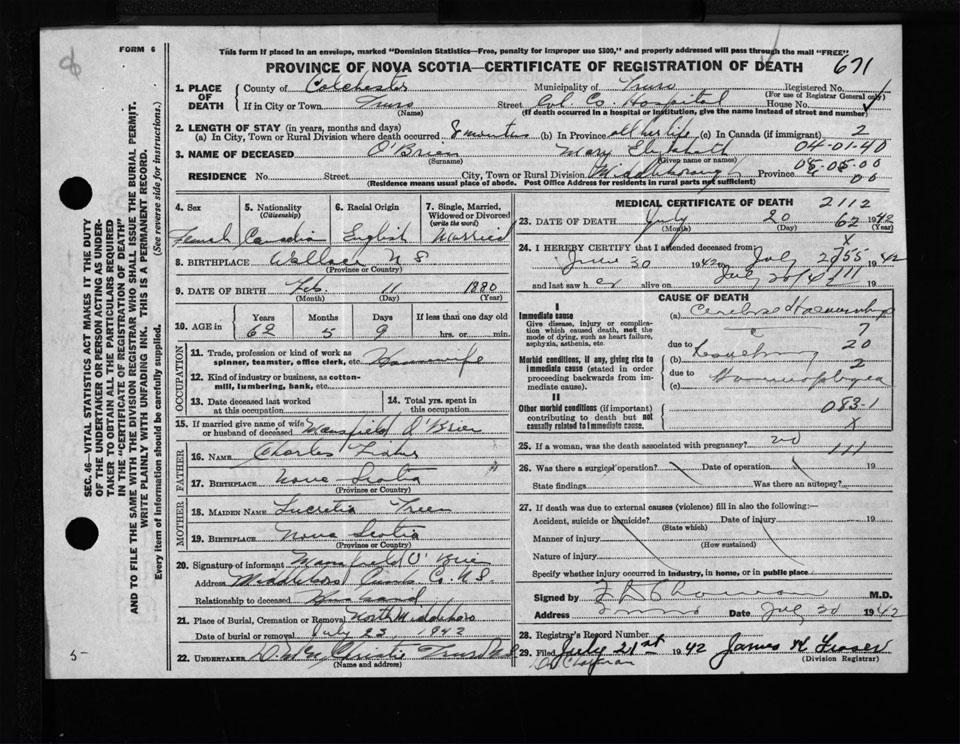 FORM 6
This form if placed in an envelope, marked "Dominion Statistics—Free, penalty for improper use $300," and properly addressed will pass through the mail "FREE"
PROVINCE OF NOVA SCOTIA—CERTIFICATE OF REGISTRATION OF DEATH 671
1. PLACE OF DEATH County of Colchester Municipality of Truro Registered No.
(For use of Registrar General only)
If in City or Town Truro Street Col. Co. Hospital House No.
(Name) (If death occurred in a hospital or institution, give the name instead of street and number)
2. LENGTH OF STAY (in years, months and days)
(a) In City, Town or Rural Division where death occurred 8 months (b) In Province all her life (c) In Canada (if immigrant) 2
3. NAME OF DECEASED O'Brien Mary Elizabeth 04-01-40
(Surname) (Given name or names)
RESIDENCE No. Street City, Town or Rural Division Middleborough Province 05-05-00
(Residence means usual place of abode. Post Office Address for residents in rural parts not sufficient) 00
4. Sex 5. Nationality (Citizenship) 6. Racial Origin 7. Single, Married, Widowed or Divorced (write the word)
Female Canadian English Married
8. BIRTHPLACE Wallace N S.
(Province or Country)
9. DATE OF BIRTH Feb. 11 1880
(Month) (Day) (Year)
10. AGE in Years Months Days If less than one day old
62 5 9 hrs. or min.
OCCUPATION
11. Trade, profession or kind of work as spinner, teamster, office clerk, etc. Housewife
12. Kind of industry or business, as cotton-mill, lumbering, bank, etc.
13. Date deceased last worked at this occupation 14. Total yrs. spent in this occupation
15. If married give name of wife or husband of deceased Mansfield O'Brien
FATHER
16. NAME Charles
17. BIRTHPLACE Nova Scotia
(Province or Country)
MOTHER
18. MAIDEN NAME Lucretia Treen
19. BIRTHPLACE Nova Scotia
(Province or Country)
20. Signature of informant Mansfield O'Brien
Address Middleboro Cumb. Co. N.S.
Relationship to deceased Husband
21. Place of Burial, Cremation or Removal North Middleboro
Date of burial or removal July 23, 1942
22. UNDERTAKER Christie Truro N.S.
(Name and address)
MEDICAL CERTIFICATE OF DEATH 2112
23. DATE OF DEATH July 20 62 1942
(Month) (Day) (Year)
X
24. I HEREBY CERTIFY that I attended deceased from
June 30 1942 to July 2055 1942
and last saw her alive on July 20/42 111 19
CAUSE OF DEATH
I
Immediate cause
Give disease, injury or complication which caused death, not the mode of dying, such as heart failure, asphyxia, asthenia, etc.
(a) Cerebral Haemorrhage
7
due to 20
Morbid conditions, if any, giving rise to immediate cause (stated in order proceeding backwards from immediate cause).
(b) 2
due to
(c)
II
Other morbid conditions (if important) contributing to death but not causally related to immediate cause.
083-1
X
25. If a woman, was the death associated with pregnancy? no 111
26. Was there a surgical operation? Date of operation 19
State findings Was there an autopsy?
27. If death was due to external causes (violence) fill in also the following:—
Accident, suicide or homicide? Date of injury 19
(State which)
Manner of injury
(How sustained)
Nature of injury
Specify whether injury occurred in industry, in home, or in public place
Signed by M.D.
Address Truro Date July 20 1942
28. Registrar's Record Number
29. Filed July 21st 1942 James H Fraser
(Division Registrar)
SEC. 46—VITAL STATISTICS ACT MAKES IT THE DUTY
OF THE UNDERTAKER OR PERSON ACTING AS UNDERTAKER TO OBTAIN ALL THE PARTICULARS REQUIRED
IN THE "CERTIFICATE OF REGISTRATION OF DEATH"
AND TO FILE THE SAME WITH THE DIVISION REGISTRAR WHO SHALL ISSUE THE BURIAL PERMIT.
WRITE PLAINLY WITH UNFADING INK. THIS IS A PERMANENT RECORD.
Every item of Information should be carefully supplied. (See reverse side for instructions.)
5-